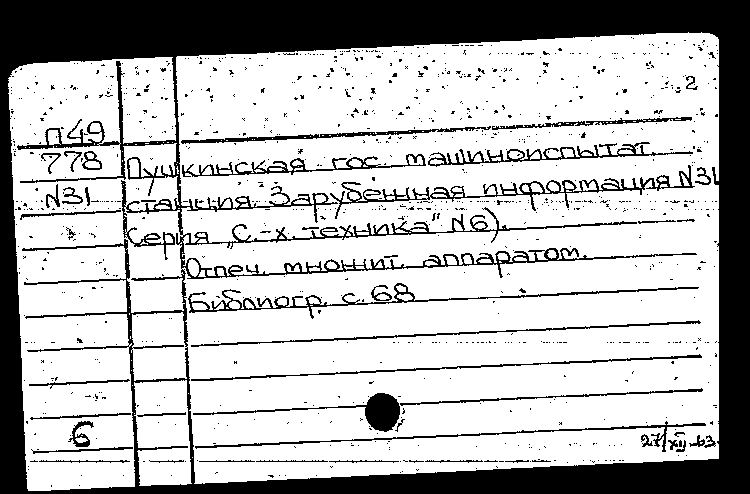 2
П49
778 Пушкинская гос. машиноиспытат.
N31 станция. Зарубежная информация N31
Серия „С.-х. техника" N6).
Отпеч. множит. аппаратом.
Библиогр. с. 68
6
27/XII-63